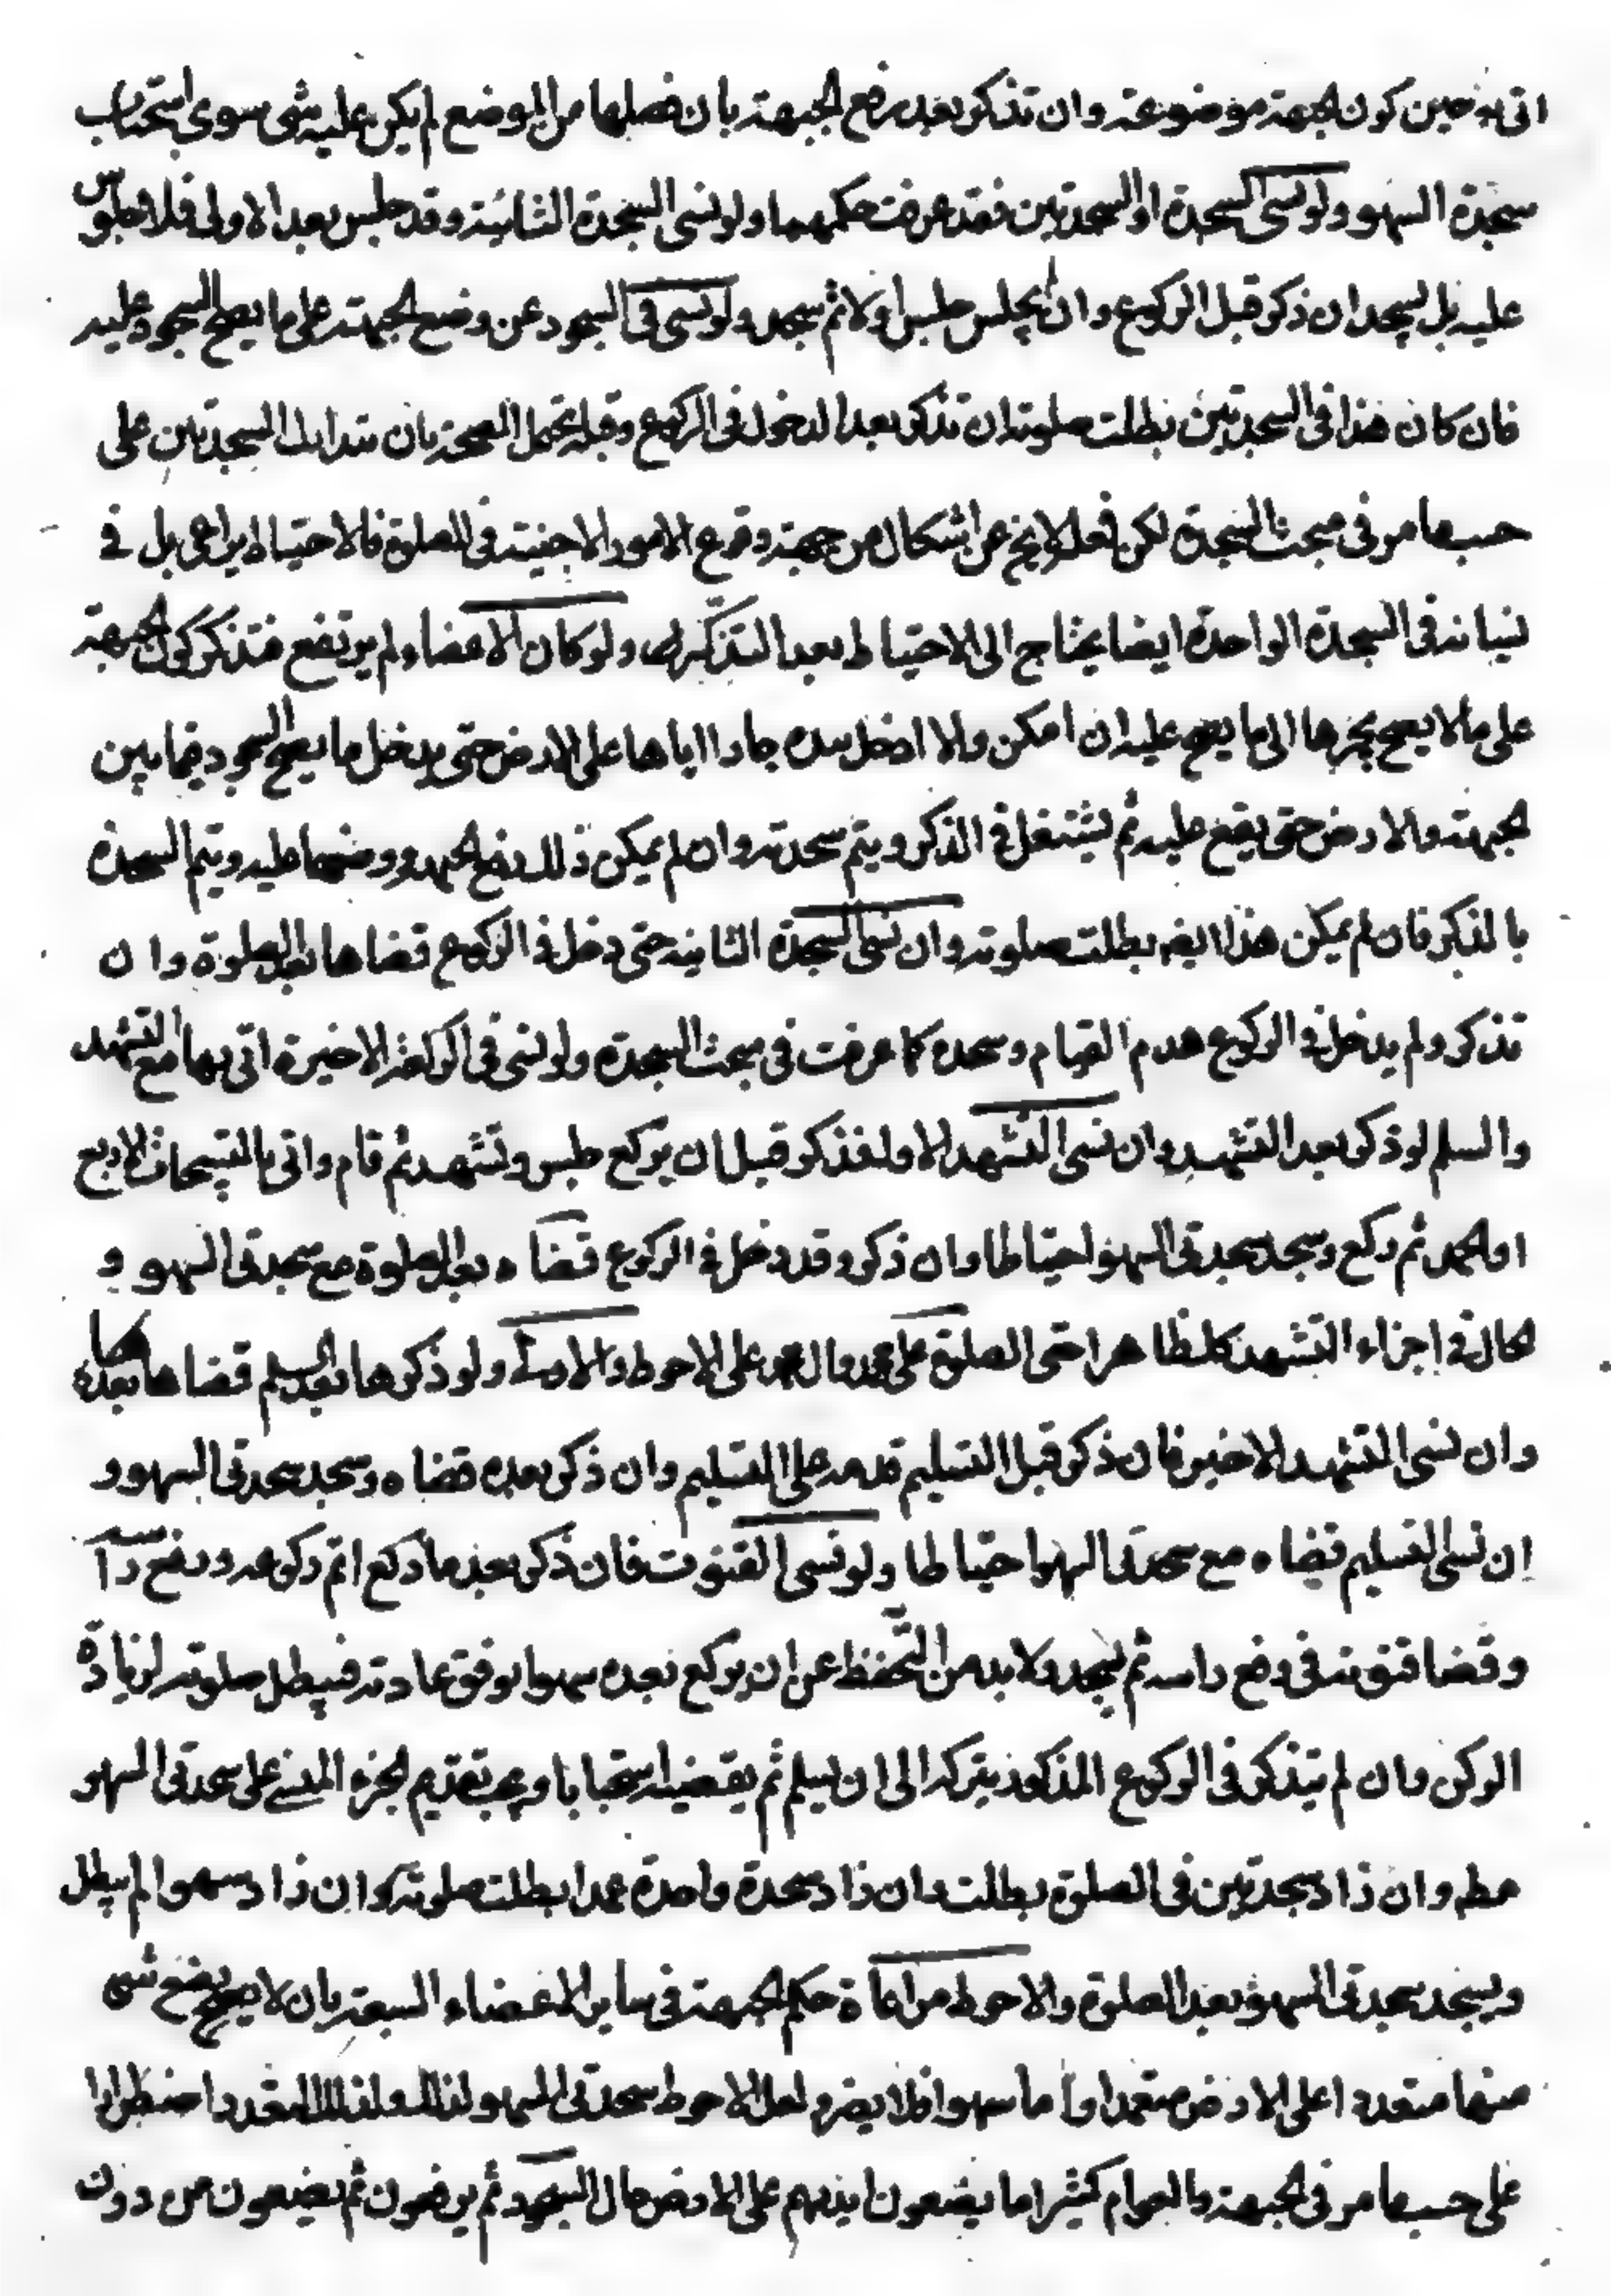 اتى به حين كون الجبهة موضوعة وان تذكر بعد رفع الجبهة بان فصلها من الموضع لم يكن عليه شى سوى استحباب
سجدة السهو ولو نسى السجدة او السجدتين فقد عرفت حكمهما ولو نسى السجدة الثانية وقد جلس بعد الاولى فلا جلوس
عليه بل يسجد ان ذكر قبل الركوع وان لم يجلس جلس اولا ثم سجد ولو نسى فى السجود عن وضع الجبهة على ما يصح السجود عليه
فان كان هذا فى السجدتين بطلت صلوته ان تذكر بعد الدخول فى الركوع وقبله يحتمل الصحة بان يتدارك السجدتين على
حسب ما مر فى مبحث السجدة لكن فعله لا يخ عن اشكال من جهة وقوع الامور الاجنبية فى الصلوة فالاحتياط يراعى بل فى
نسيانه فى السجدة الواحدة ايضا يحتاج الى الاحتياط بعد التذكر ولو كان الاعضاء لم يرتفع فتذكر كون الجبهة
على ما لا يصح يجرها الى ما يصح عليه ان امكن والا ادخل يده جارا اياها على الارض حتى يدخل ما يصح السجود فيما بين
الجبهة والارض حتى يقع عليه ثم يشتغل فى الذكر ويتم سجدته وان لم يمكن ذلك رفع الجبهة ووضعها عليه ويتم السجدة
بالذكر فان لم يمكن هذا ايضه بطلت صلوته وان نسى السجدة الثانية حتى دخل فى الركوع قضاها بعد الصلوة وان
تذكر ولم يدخل فى الركوع هدم القيام وسجده كما عرفت فى مبحث السجدة ولو نسى فى الركعة الاخيرة اتى بها مع التشهد
والسلم لو ذكر بعد التشهد وان نسى التشهد الاول فذكر قبل ان يركع جلس وتشهد ثم قام واتى بالتسبيحات الاربع
او الحمد ثم ركع وسجد سجدتى السهو احتياطا وان ذكر وقد دخل فى الركوع قضاه بعد الصلوة مع سجدتى السهو و
كالحال فى اجزاء التشهد كلظاهرا حتى الصلوة على محمد وال محمد على الاحوط والاولى ولو ذكرها بعد السلم قضاها بعده
وان نسى التشهد الاخير فان ذكر قبل التسليم قدمه على التسليم وان ذكر بعده قضاه وسجد سجدتى السهو و
ان نسى التسليم قضاه مع سجدتى السهو احتياطا ولو نسى القنوت فان ذكر بعد ما ركع اتم ركوعه ورفع راسه
وقضا قنوته فى رفع راسه ثم يسجد ولا بد من التحفظ عن ان يركع بعده سهوا بوفق عادته فيبطل صلوته لزيادة
الركن وان لم يتذكر فى الركوع المذكور يتركه الى ان يسلم ثم يقضيه استحبابا ويجب تقديم الجزء المنسى على سجدتى السهو
مطه وان زاد سجدتين فى الصلوة بطلت وان زاد سجدة واحدة عمدا بطلت صلوته وان زاد سهوا لم يبطل
ويسجد سجدتى السهو بعد الصلوة والاحوط مراعاة حكم الجبهة فى ساير الاعضاء السبعة بان لا يصح وضع شى
منها متعددا على الارض متعمدا واما سهوا فلا يضر ولعل الاحوط سجدتى السهو لذلك ولذلك المتعدد اضطرارا
على حسب ما مر فى الجبهة والعوام كثيرا ما يضعون ايديهم على الارض حال السجود ثم يرفعون ثم يضعون من دون